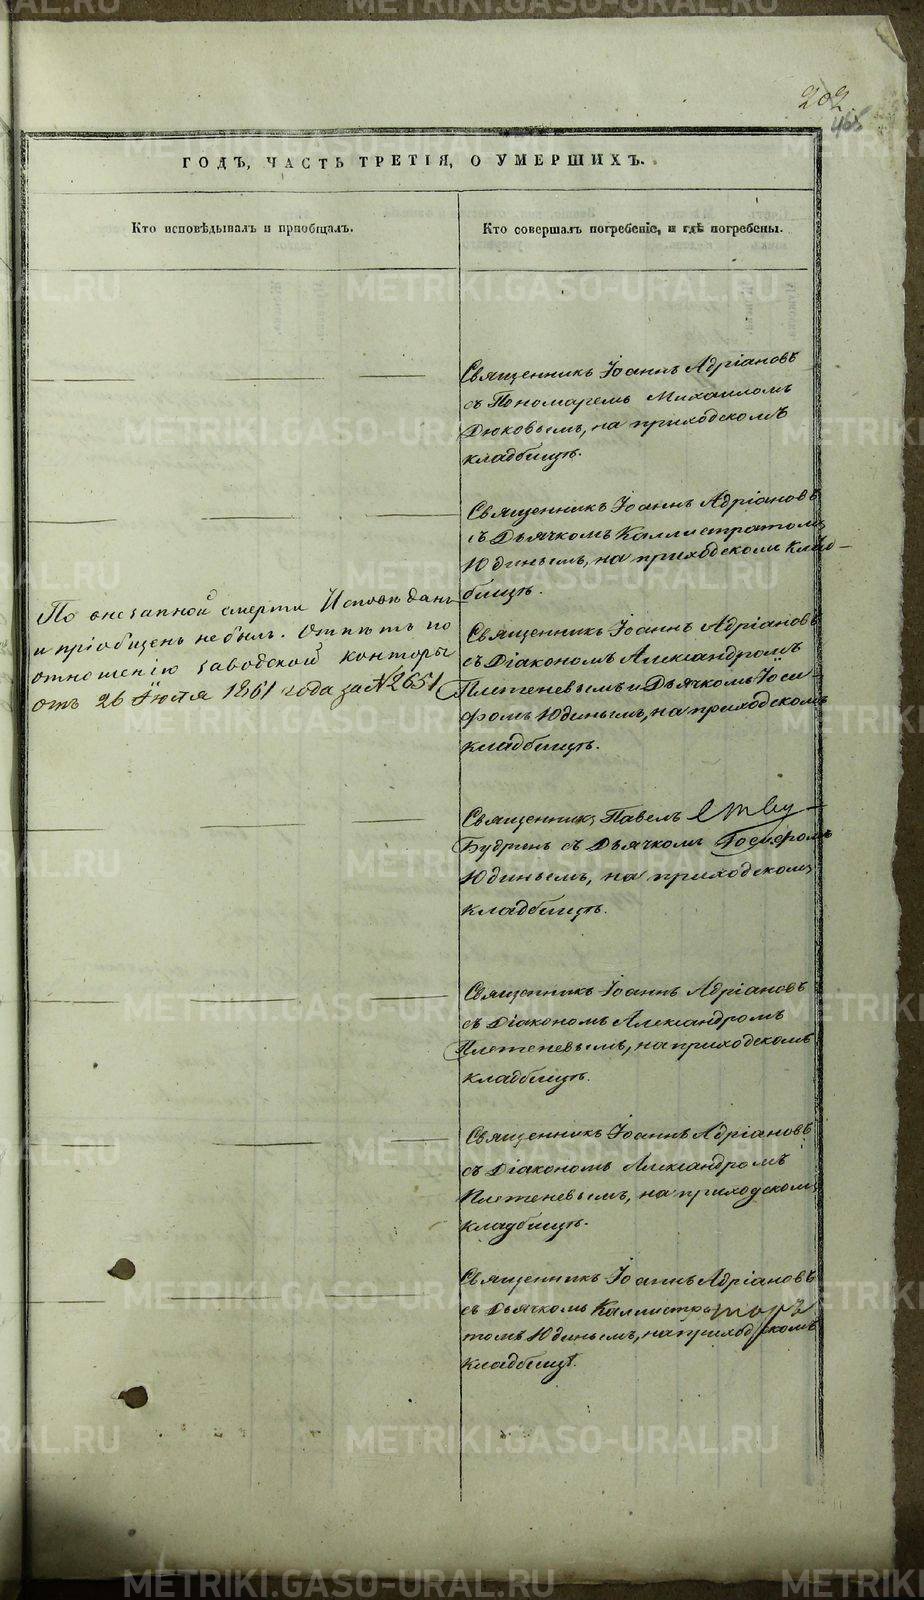 202
465
ГОДЪ, ЧАСТЬ ТРЕТІЯ, О УМЕРШИХЪ.
Кто исповѣдывалъ и пріобщалъ.
Кто совершалъ погребеніе, и гдѣ погребены.
Священникъ Іоаннъ Адріановъ
съ Пономаремъ Михаиломъ
Дюковымъ, на приходскомъ
кладбищѣ.
Священникъ Іоаннъ Адріановъ
съ Дьячкомъ Каллистратомъ
Юдинымъ, на приходскомъ клад-
бищѣ.
По внезапной смерти Исповѣданъ
и пріобщенъ не былъ. Отпѣтъ по
отношенію заводской конторы
отъ 26 Іюля 1861 года за № 2651
Священникъ Іоаннъ Адріановъ
съ Діакономъ Александромъ
Плетеневымъ и Дьячкомъ Іоси-
фомъ Юдинымъ, на приходскомъ
кладбищѣ.
Священникъ Павелъ
съ Дьячкомъ Іосифомъ
Юдинымъ, на приходскомъ
кладбищѣ.
Священникъ Іоаннъ Адріановъ
съ Діакономъ Александромъ
Плетеневымъ, на приходскомъ
кладбищѣ.
Священникъ Іоаннъ Адріановъ
съ Діакономъ Александромъ
Плетеневымъ, на приходскомъ
кладбищѣ.
Священникъ Іоаннъ Адріановъ
съ Дьячкомъ Каллистра-
томъ Юдинымъ, на приходскомъ
кладбищѣ.
METRIKI.GASO-URAL.RU